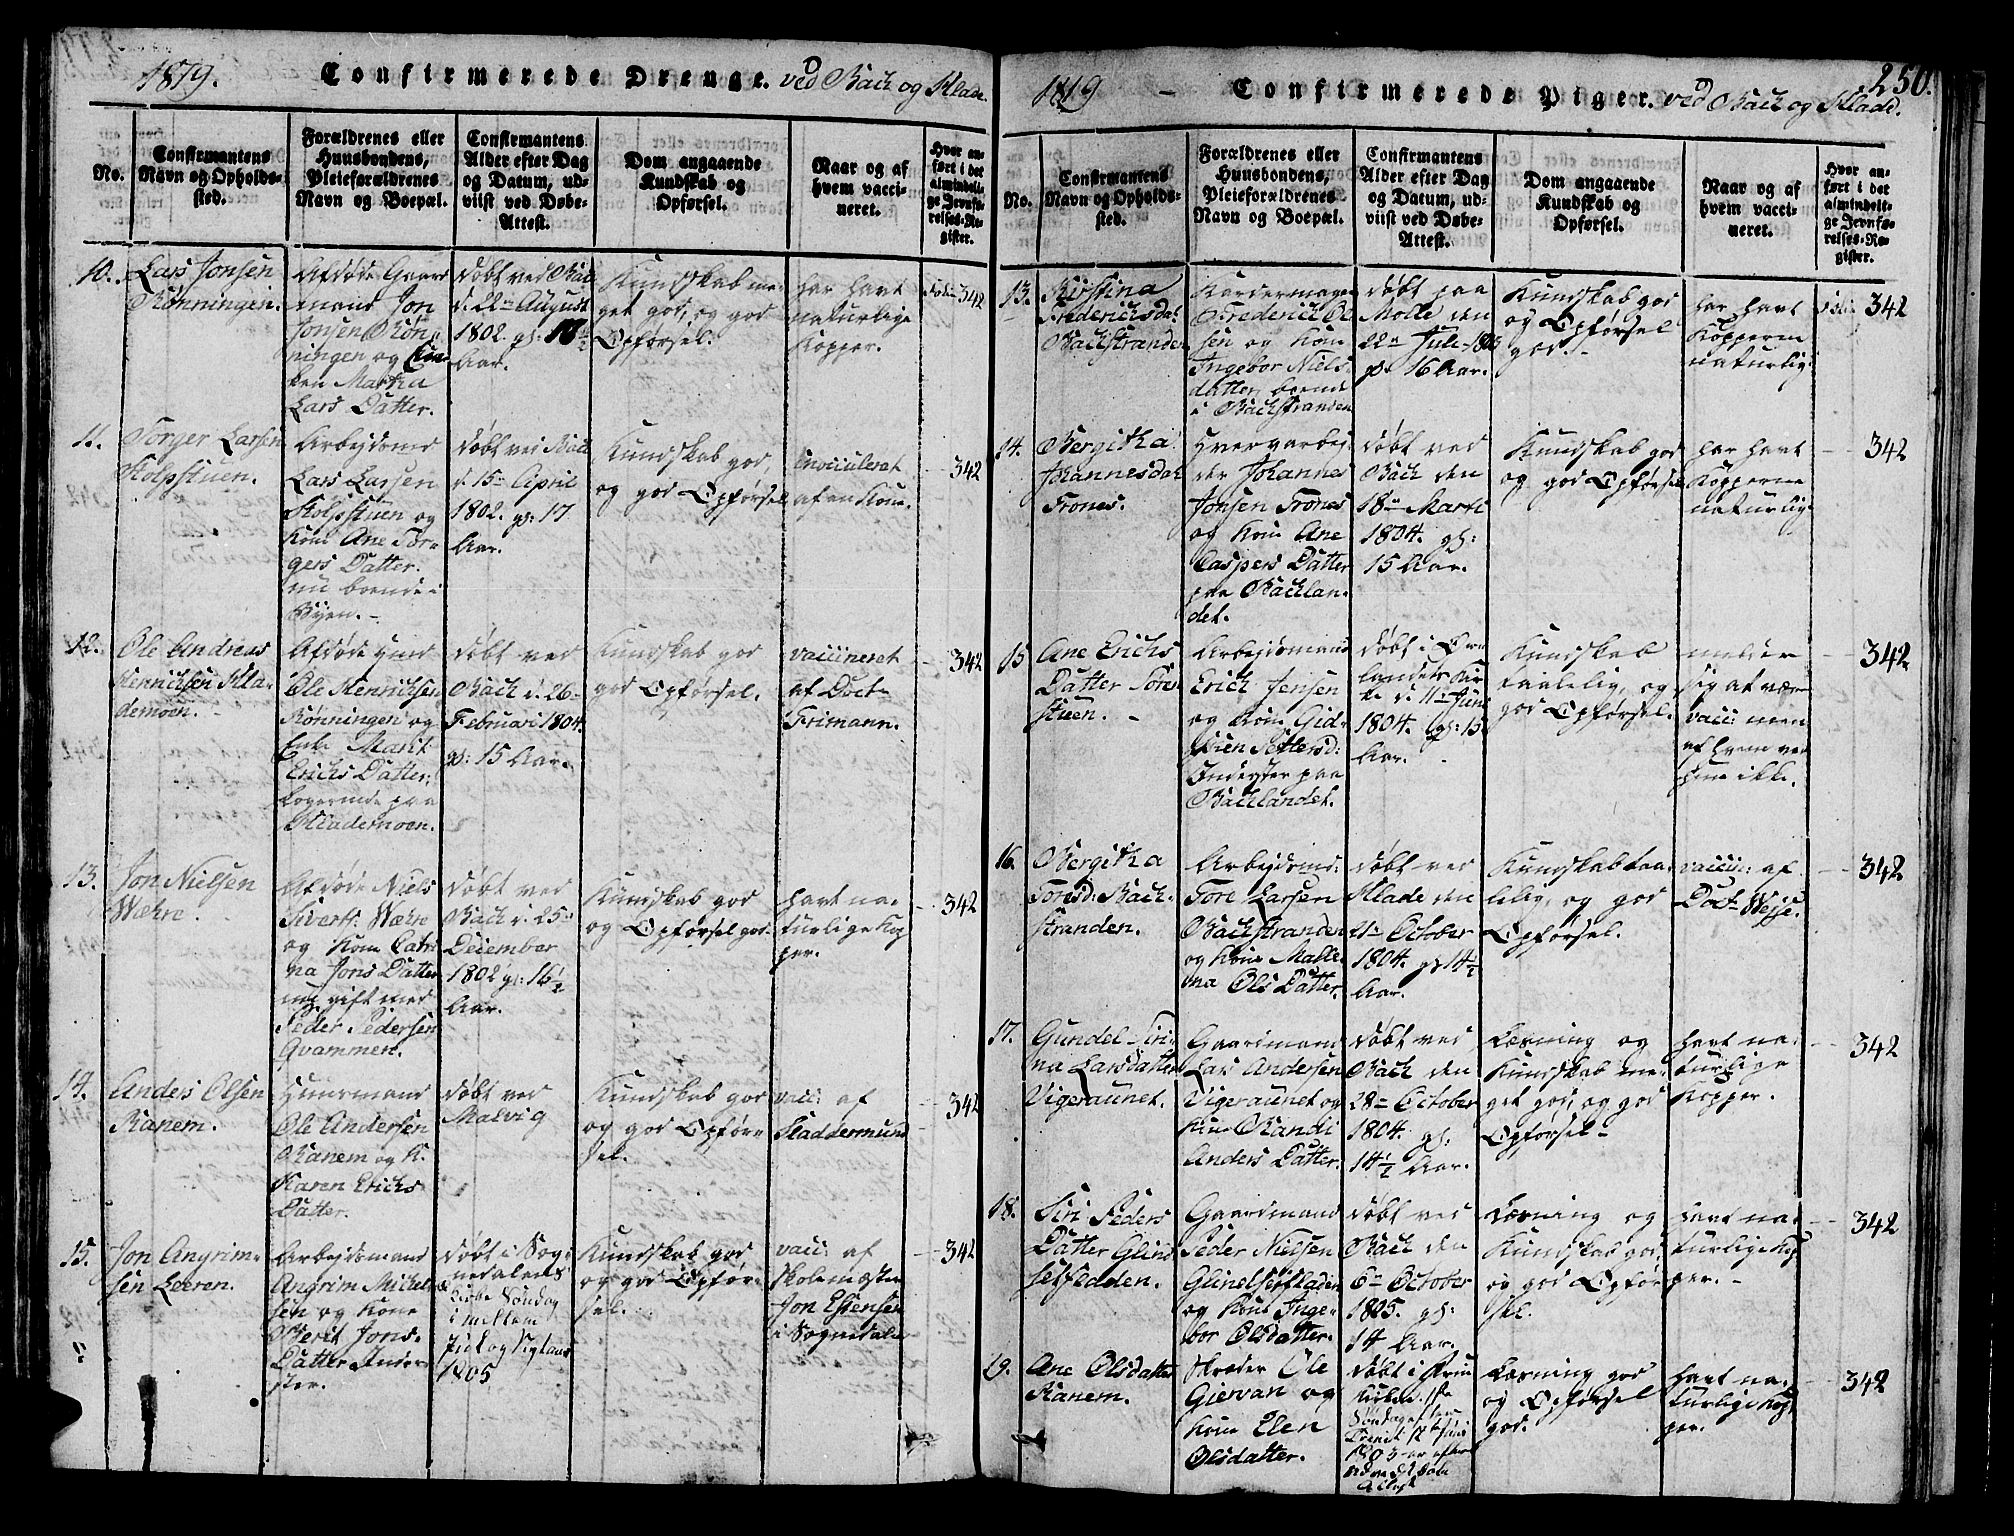 1819. Confirmerede Drenge. ved Bach og Hlade.
No.
Confirmantens
Navn og Opholds-
sted.
Forældrenes eller
Huusbondens,
Pleieforældrenes
Navn og Boepæl.
Confirmantens
Alder efter Dag
og Datum, ud-
viist ved Døbe-
Attest.
Dom angaaende
Kundskab og
Opførsel.
Naar og af
hvem vacci-
neret.
Hvor an-
ført i det
almindeli-
ge Jevnfø-
relses-Re-
gister.
10.
Lars Jonsen
Rønningen.
Afdøde Gaard
mand Jon
Jonsen Røn-
ningen og En-
ken Martha
Lars Datter.
døbt ved Bach
d. 22de August
1802. gl:
Aar.
Kundskab me-
get god, og god
Opførsel.
har havt
naturlige
Kopper.
342
11.
Torger Larsen
Kolpstuen.
Arbejdsmd
Lars Larsen
Kolpstuen og
Kone Ane Tor-
gers Datter.
nu boende i
Byen.
døbt ved Bach
d. 15de April
1802. gl: 17
Aar.
Kundskab god,
og god Opførsel
inocculeret
af en Kone.
342
12.
Ole Andreas
Henrichsen Hla-
demoen.
Afdøde
Ole Henrichsen
Rønningen og
Enke Marit
Erichs Datter,
Logerende paa
Hlademoen.
døbt ved
Bach d. 26de
Februari 1804.
gl: 15 Aar.
Kundskab god
god Opførsel.
vaccineret
af Doct
Frimann.
342
13.
Jon Nielsen
Wæhre.
Afdøde Niels
Siverts. Wæhre
og Kone Catri
na Jons Datter
nu gift med
Peder Pedersen
Qvammen.
døbt ved
Bach d. 25de
December
1802 gl: 16½
Aar.
Kundskab god
og Opførsel god.
havt na-
turlige Kop
per.
342
14.
Anders Olsen
Ranem.
Huusmand
Ole Andersen
Ranem og K.
Karen Erichs
Datter.
døbt ved
Malvig
Kundskab god
og god Opfør-
sel.
vacc: af
Sladdermund
342
15.
Jon Angrim-
sen Leeren.
Arbejdsmand
Angrim Michel
sen og Kone
Berit Jons
Datter Inder-
ster.
døbt i Sog-
nedalens
Kirke Søndag
imellem
Juul og Nytaar
1805
Kundskab god
og god Opfør-
sel.
vacc: af
Skolemester
Jon Estensen
i Sognedalen
342
1819 - Confirmerede Piger. ved Bach og Hlade.
250.
No.
Confirmantens
Navn og Opholds-
sted.
Forældrenes eller
Huusbondens,
Pleieforældrenes
Navn og Boepæl.
Confirmantens
Alder efter Dag
og Datum, ud-
viist ved Døbe-
Attest.
Dom angaaende
Kundskab og
Opførsel.
Naar og af
hvem vacci-
neret.
Hvor an-
ført i det
almindeli-
ge Jevnfø-
relses-Re-
gister.
13.
Kirstina
Frederichsdat
Bachstranden
Kardemager
Frederich Ol
sen og Kone
Ingebor Niels
datter, boende
i Bachstranden
døbt paa
Molde den
22de Juli 1803
gl. 16 Aar.
Kundskab god
og Opførsel
god.
har havt
Kopperne
naturlig.
342
14.
Bergitha
Johannesdat
Trones.
der Johannes
Jonsen Trones
og Kone Ane
Caspers Datter
paa Bachlan-
det.
døbt ved
Bach den
18de Marti
1804. gl:
15 Aar.
Kundskab god
og god Opførsel
har havt
Kopperne
naturlig.
342
15
Ane Erichs
Datter Tores
stuen.
Arbejdsmand
Erich Jensen
og Kone Gid-
sken Pettersd:
Inderster paa
Bachlandet.
døbt i Ørke
landets Kir
ke d. 11te Juni
1804. gl: 15
Aar.
Kundskab
taalelig, og
god Opførsel.
melder
sig at være
vacc: men
af hvem ved
hun ikke.
342
16.
Bergitha
Toresd: Bach-
stranden.
Arbejdsmd:
Tore Larsen
Bachstranden
og Kone Malle-
na Ols Datter.
døbt ved
Hlade den
21de October
1804. gl 14½
Aar.
Kundskab taa-
lelig, og god
Opførsel.
vacci: af
Doct Wesse.
342
17.
Gundel Siri-
na Larsdatter
Vigeraunet.
Gaardmand
Lars Andersen
Vigeraunet og
Kone Randi
Anders Datter.
døbt ved
Bach den
28de October
1804. gl:
14½ Aar.
Læsning og
Kundskab me-
get god, og god
Opførsel
havt na-
turlige
Kopper.
342
18.
Siri Peders
Datter Glind
selsfedden.
Gaardmand
Peder Nielsen
og Kone Inge-
bor Olsdatter.
døbt ved
Bach den
6te October
1805. gl:
14 Aar.
Læsning og
Kundskab god,
og god Opfør
sel.
havt na-
turlige Kop
per.
342
19.
Ane Olsdatter
Ranem.
Skræder Ole
Gjervan og
Kone Elen
Olsdatter.
døbt i
Søndag efter
1803
Læsning god
og Opførsel
god.
havt na-
turlige Kop
per.
342